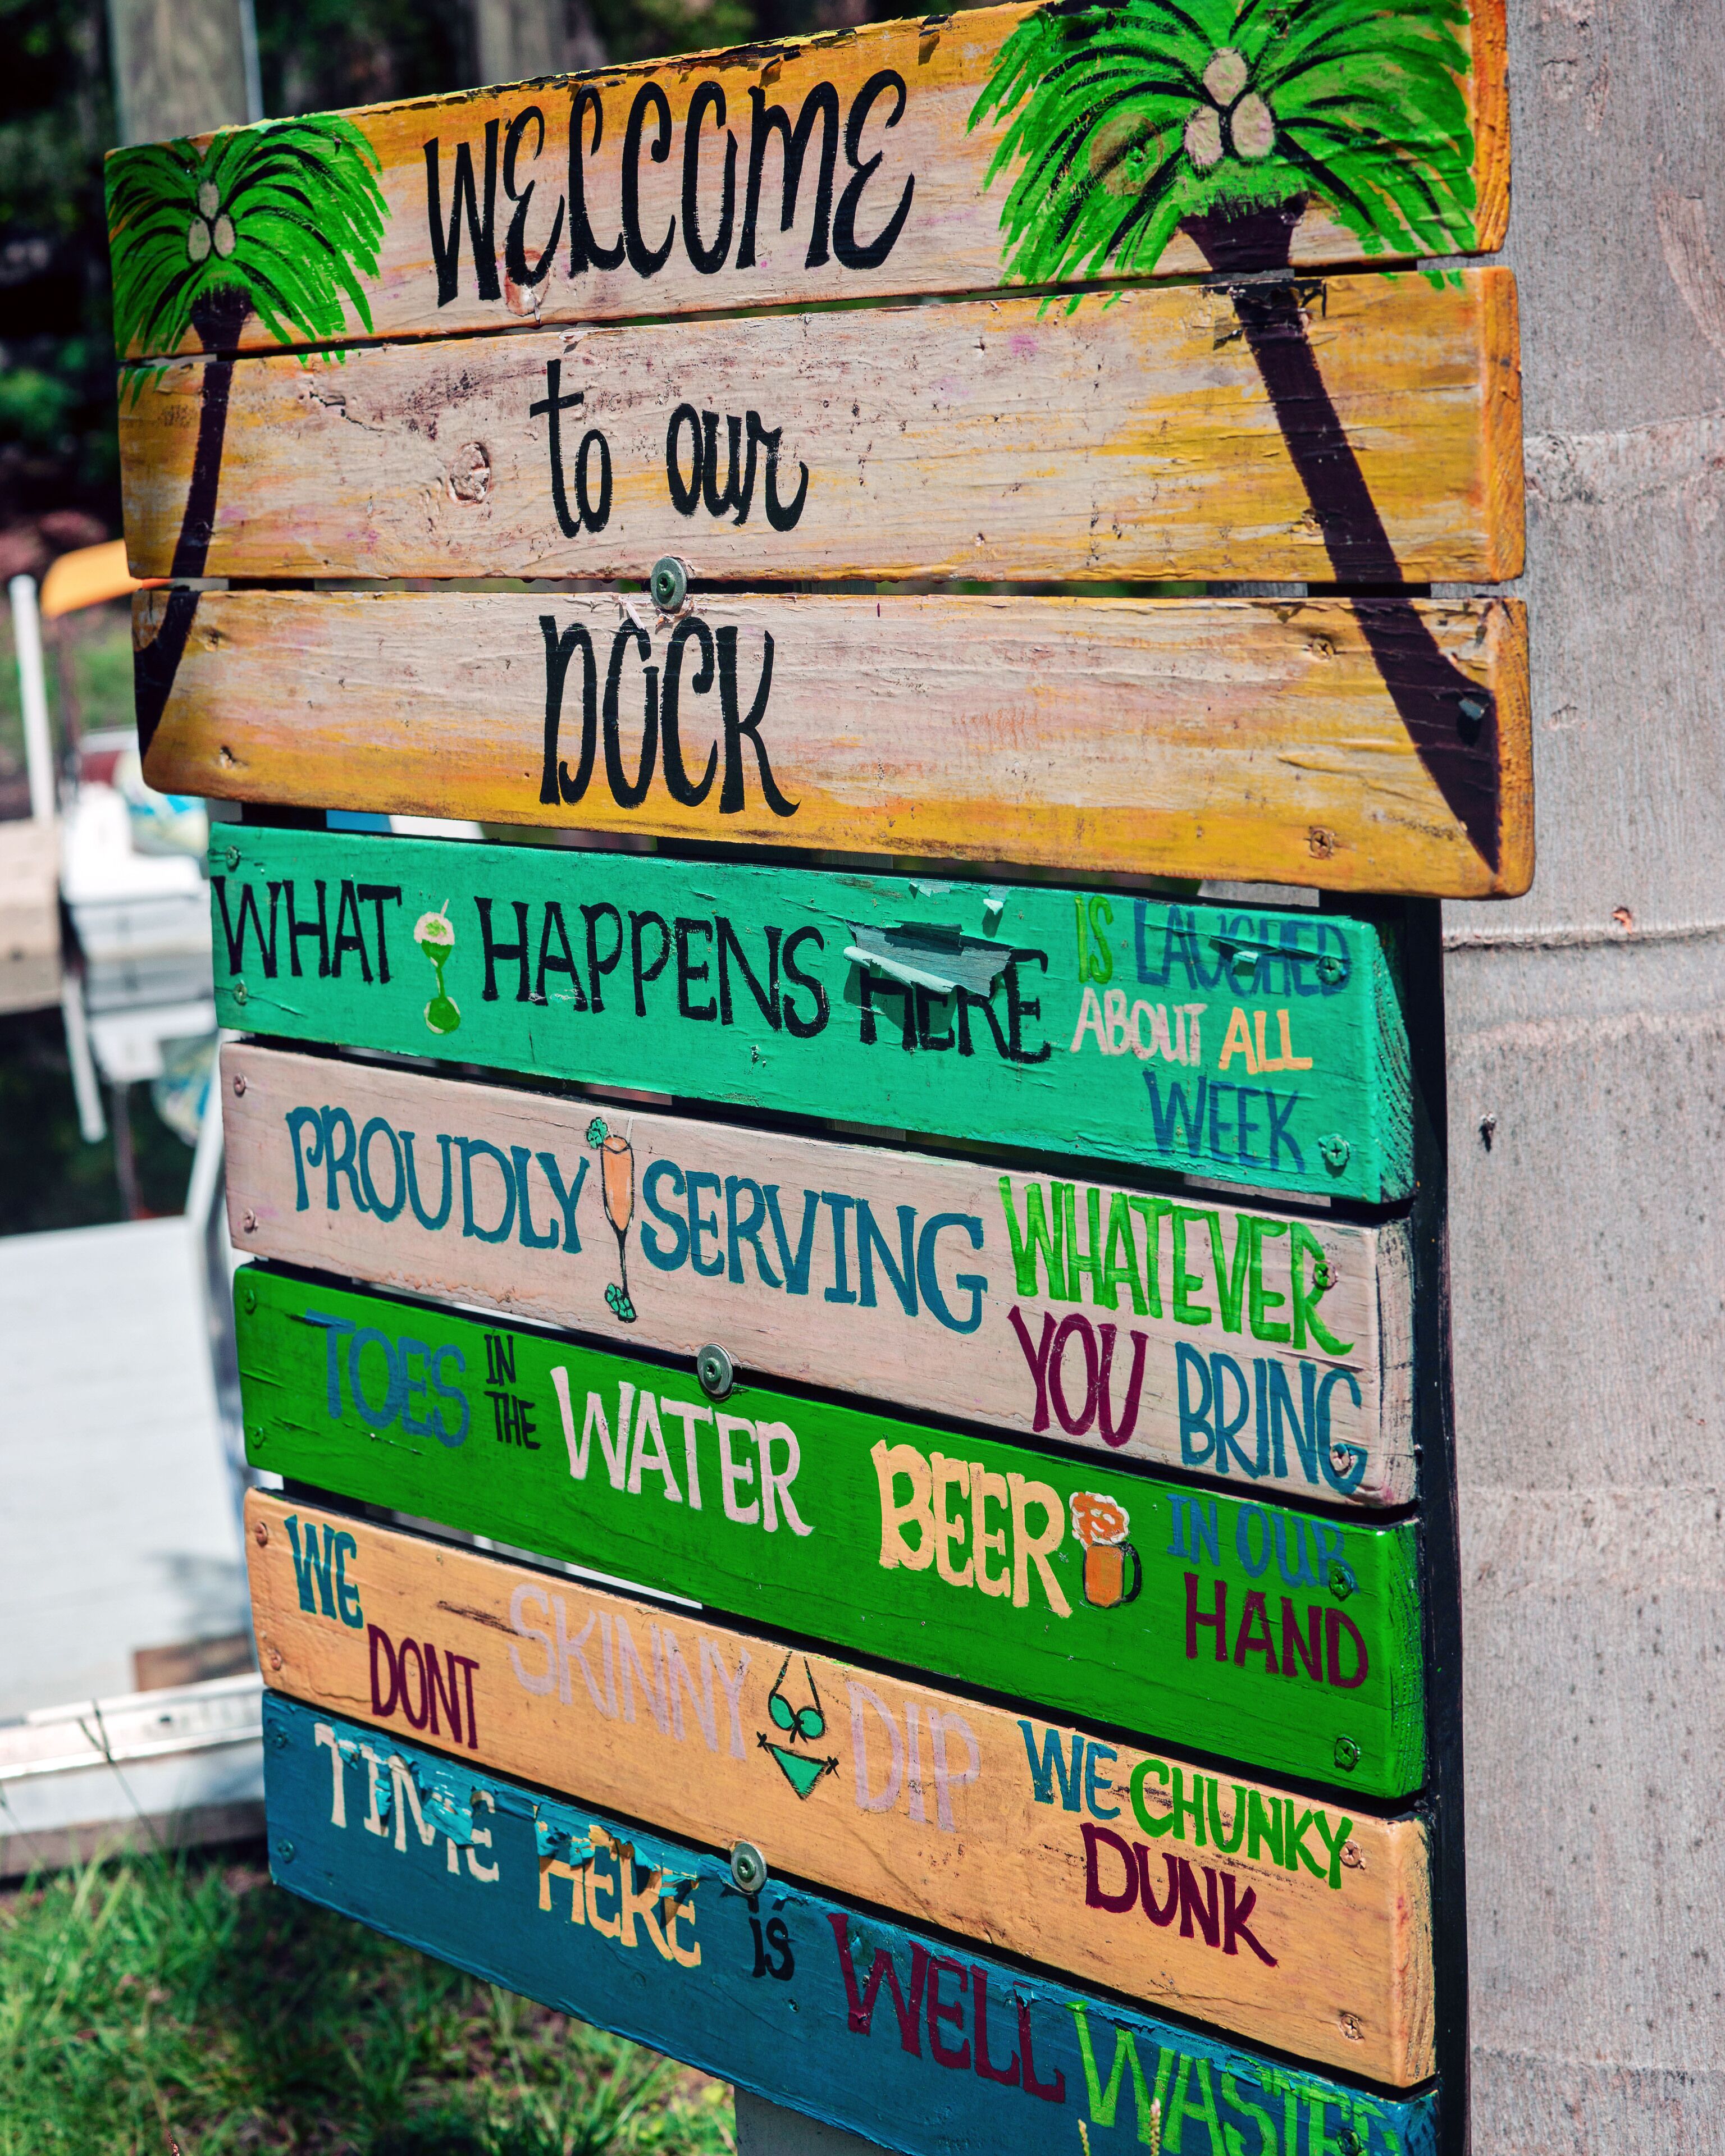 WELCOME
to our
DOCK
WHAT HAPPENS HERE IS LAUGHED
ABOUT ALL
WEEK
PROUDLY SERVING WHATEVER
YOU BRING
TOES IN THE WATER BEER IN OUR
HAND
WE DONT SKINNY DIP WE CHUNKY
DUNK
TIME HERE is WELL WASTED